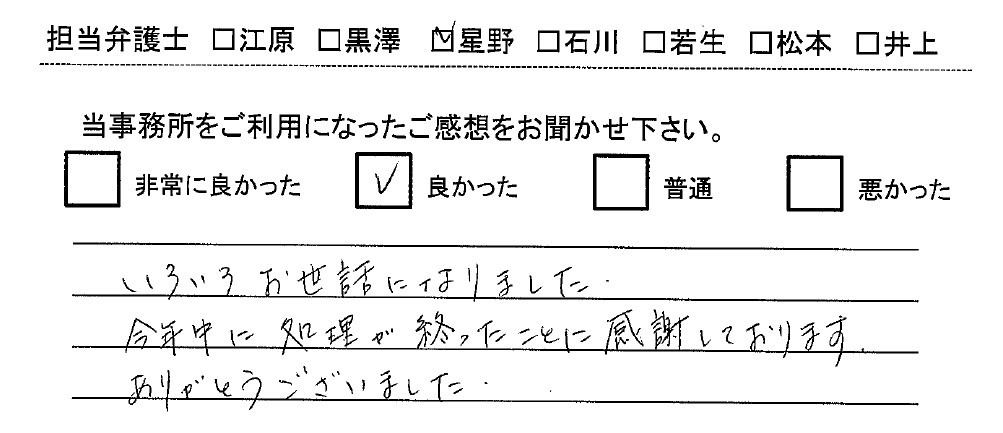 担当弁護士 □江原 □黒澤 ☑星野 □石川 □若生 □松本 □井上
当事務所をご利用になったご感想をお聞かせ下さい。
□ 非常に良かった ☑ 良かった □ 普通 □ 悪かった
いろいろお世話になりました.
今年中に処理が終ったことに感謝しております.
ありがとうございました.